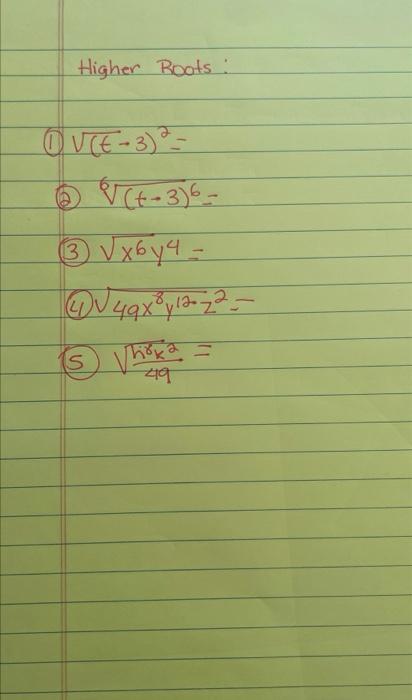 Higher Roots :
① √(t-3)² =
② ⁶√(t-3)⁶ =
③ √x⁶y⁴ =
④ √49x⁸y¹²z² =
⑤ √h⁸k²/49 =